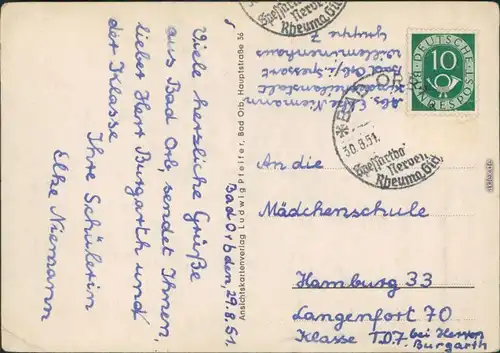 Bad Orb den, 29.8.51.
Viele herzliche Grüße
aus Bad Orb, sendet Ihnen,
lieber Herr Burgarth und
der Klasse
Ihre Schülerin
Elke Niemann
Ansichtskartenverlag Ludwig Pfeifer, Bad Orb, Hauptstraße 36
Abs. Elke Niemann
Kinderheilanstalt
Bad Orb/i. Spessart
Wilhelminenhaus
Gruppe 7
Nerven
Rheuma
DEUTSCHE
BUNDESPOST
10
BAD ORB
30.8.51.
Spessartbad
Nerven
Rheuma
An die
Mädchenschule
Hamburg 33
Langenfort 70
Klasse T07 bei Herrn
Burgarth